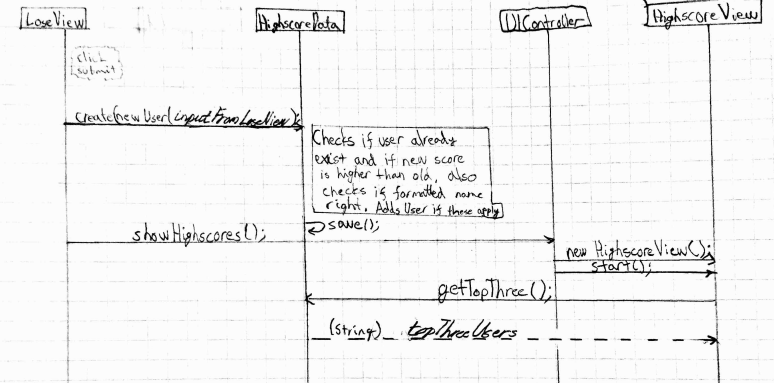 LoseView
HighscoreData
UIController
HighscoreView
click
submit
createnewUser(inputFromLoseView);
Checks if user already
exist and if new score
is higher than old, also
checks if formatted name
right. Adds User if these apply
save();
showHighscores();
new HighscoreView();
start();
getTopThree();
(String) topThreeUsers